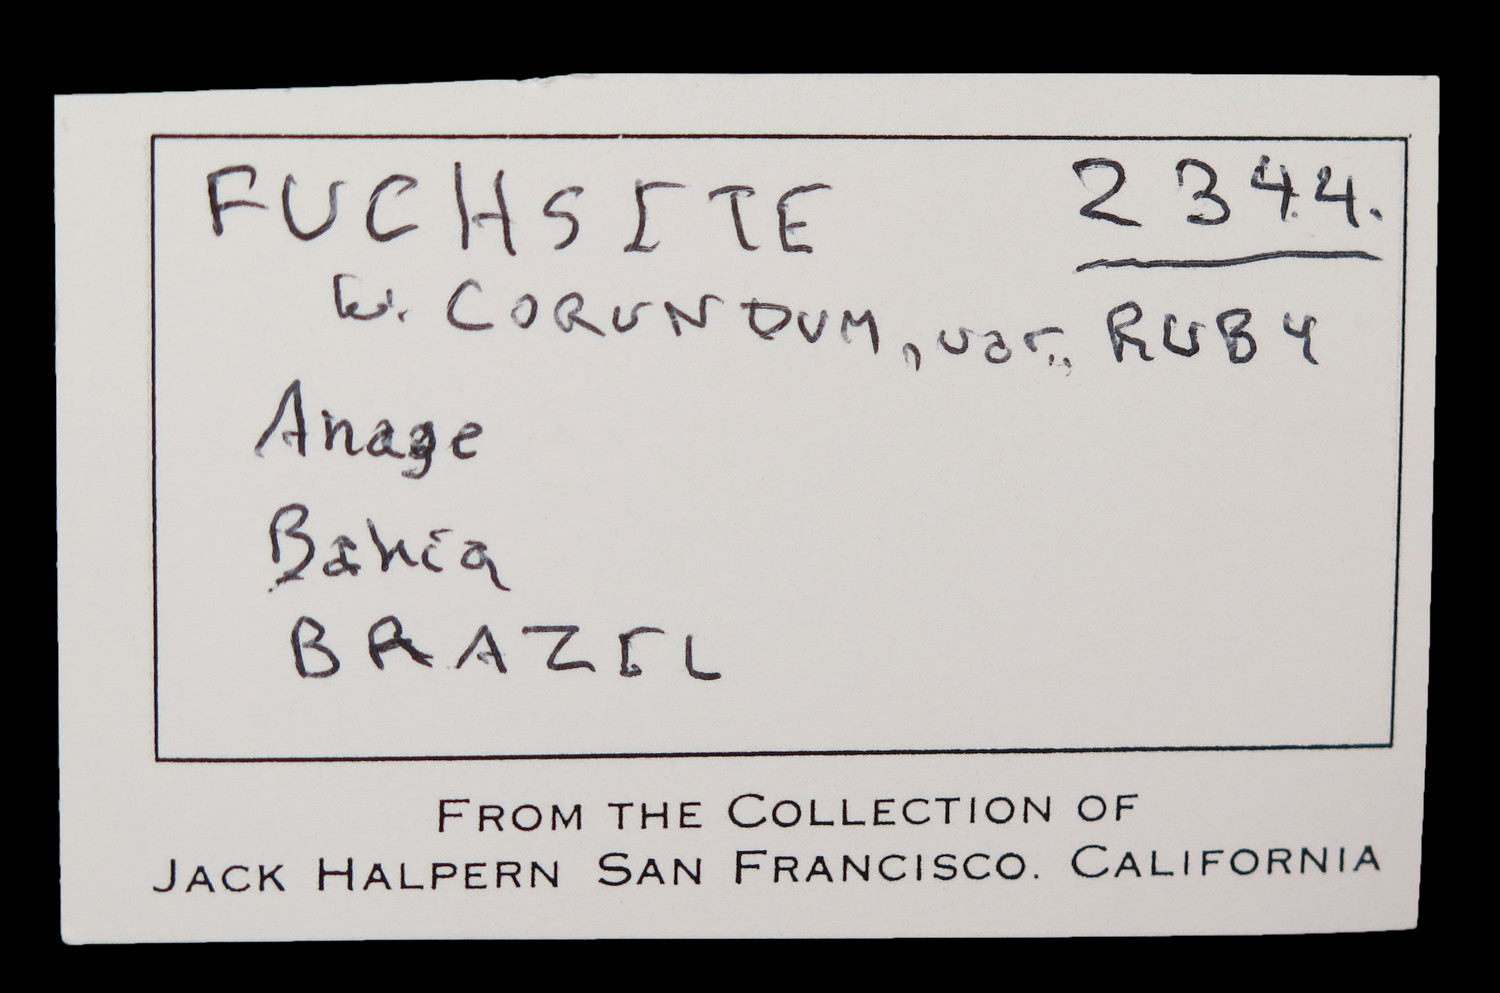 FUCHSITE 2344.
w. CORUNDUM, var., RUBY
Anage
Bahia
BRAZIL
FROM THE COLLECTION OF
JACK HALPERN SAN FRANCISCO. CALIFORNIA